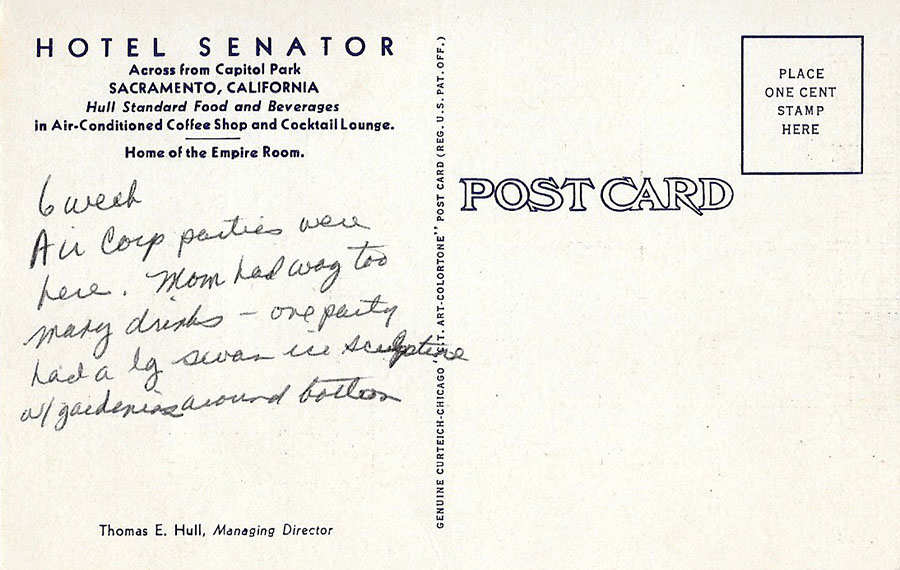 HOTEL SENATOR
Across from Capitol Park
SACRAMENTO, CALIFORNIA
Hull Standard Food and Beverages
in Air-Conditioned Coffee Shop and Cocktail Lounge.
Home of the Empire Room.
6 week
Air Corp parties were
here. Mom had way too
many drinks – one party
had a lg swan ice sculpture
w/ gardenias around bottom
Thomas E. Hull, Managing Director
GENUINE CURTEICH-CHICAGO "C.T. ART-COLORTONE" POST CARD (REG. U.S. PAT. OFF.)
POST CARD
PLACE
ONE CENT
STAMP
HERE